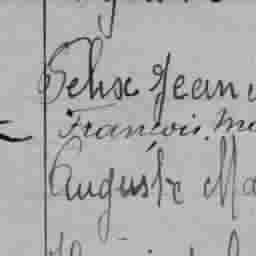 Felix Jean
François, Ma
Auguste Ma